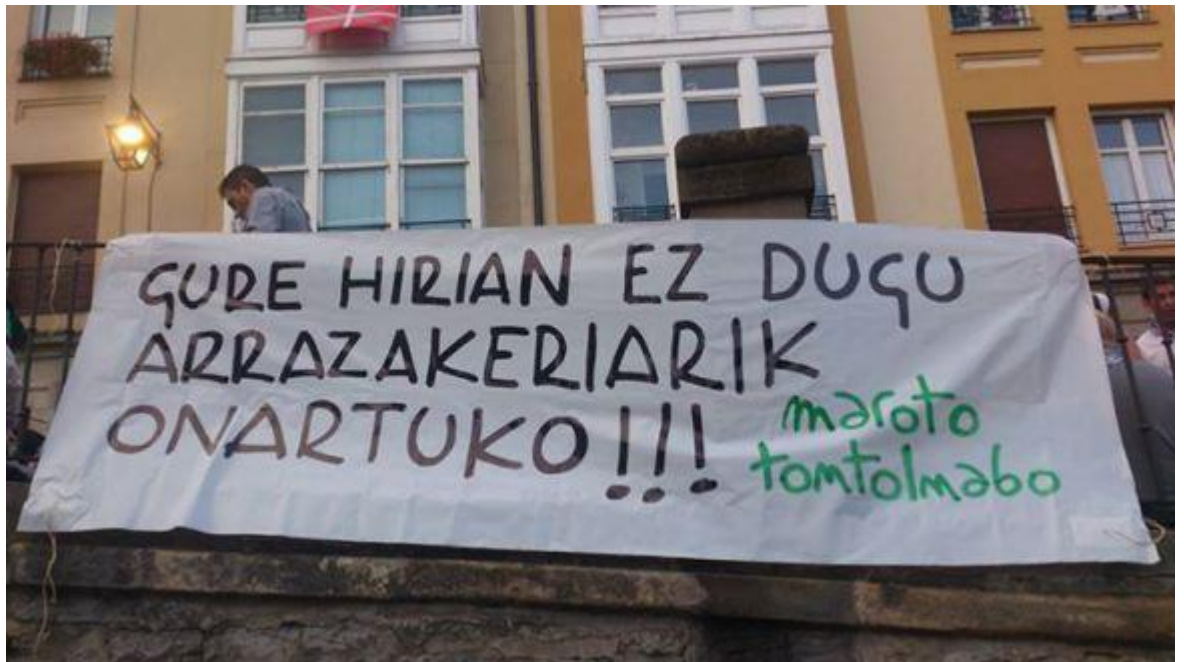 GURE HIRIAN EZ DUGU
ARRAZAKERIARIK
ONARTUKO!!!
maroto
tomtolmabo